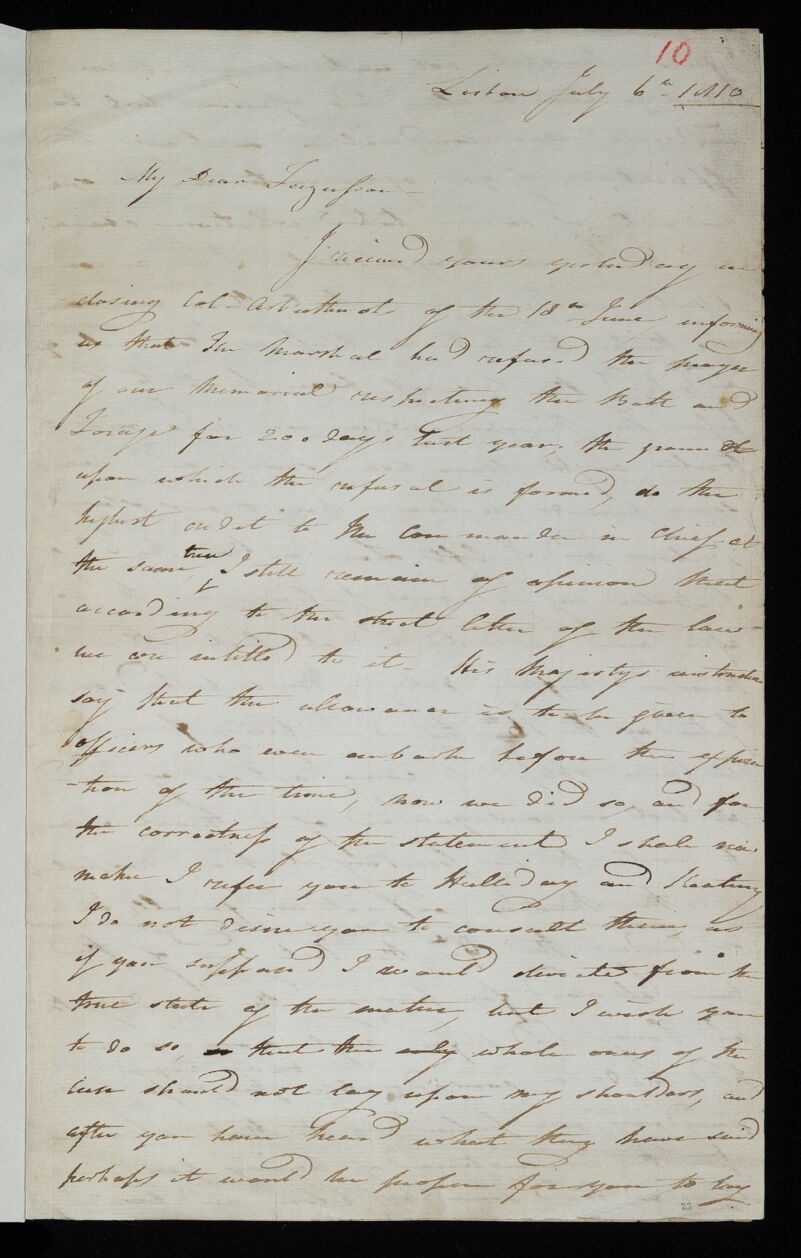 10
Lisbon July 6th 1810
My Dear Fergusson
I received yours yesterday in
closing Col. Arbuthnots of the 18th June, informing
us that The Marshal had refused the prayer
of our Memorial respecting the Batt and
Forage for 200 days last year, the grounds
upon which the refusal is formed, do the
highest credit to The Commander in Chief at
the same time, I still remain of opinion that
according to the strict letter of the law
we are intitled to it - His Majestys instructions
say that the allowance is to be given to
officers who even embark before the expira
tion of the time, now we did so, and for
the correctness of the statement I shall now
make I refer you to Halliday and Keating
I do not desire you to consult them, as
if you supposed I would deviate from the
true state of the matter, but I wish you
to do so, that the only whole onus of the
case should not lay upon my shoulders, and
after you have heard what they have said
perhaps it would be proper for you to lay
25